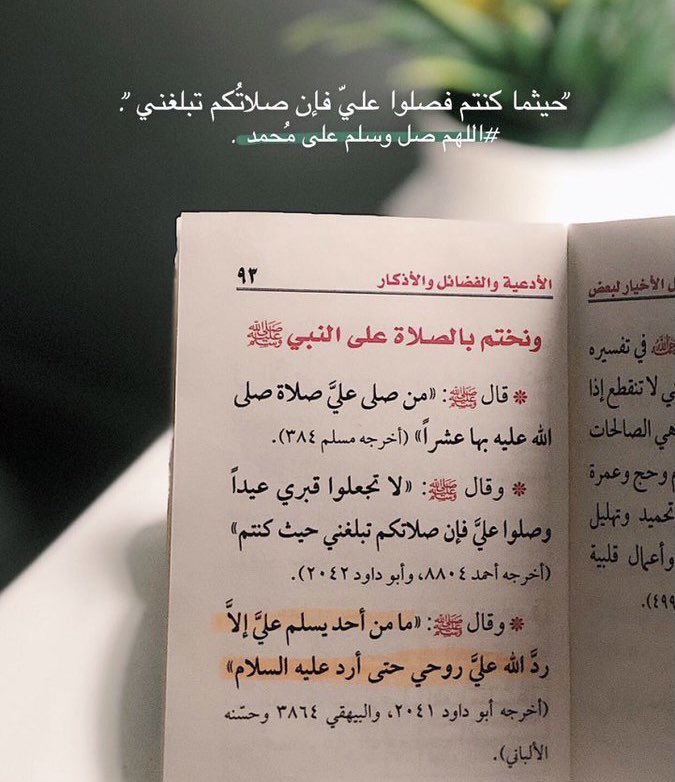 "حيثما كنتم فصلوا عليّ فإن صلاتُكم تبلغني".
#اللهم صل وسلم على مُحمد .
الأدعية والفضائل والأذكار ٩٣
ونختم بالصلاة على النبي ﷺ
* قال ﷺ: «من صلى عليَّ صلاة صلى
الله عليه بها عشراً» (أخرجه مسلم ٣٨٤).
* وقال ﷺ: «لا تجعلوا قبري عيداً
وصلوا عليَّ فإن صلاتكم تبلغني حيث كنتم»
(أخرجه أحمد ٨٨٠٤، وأبو داود ٢٠٤٢).
* وقال ﷺ: «ما من أحد يسلم عليَّ إلاَّ
ردَّ الله عليَّ روحي حتى أرد عليه السلام»
(أخرجه أبو داود ٢٠٤١، والبيهقي ٣٨٦٤ وحسّنه
الألباني).
الأخيار لبعض
في تفسيره
لا تنقطع إذا
هي الصالحات
وحج وعمرة
تحميد وتهليل
وأعمال قلبية